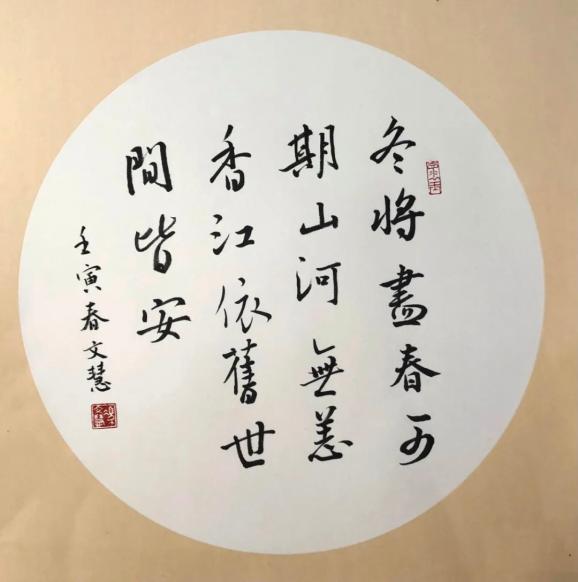 冬将盡春可
期山河無恙
香江依舊世
間皆安
壬寅春文慧